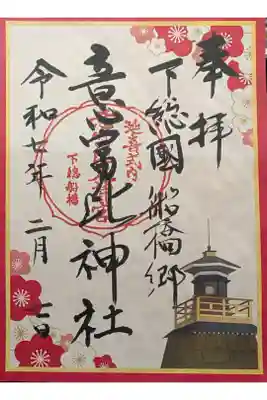 奉拝
下総國船橋郷
意富比神社
延喜式内
下総船橋
令和七年 二月 七日